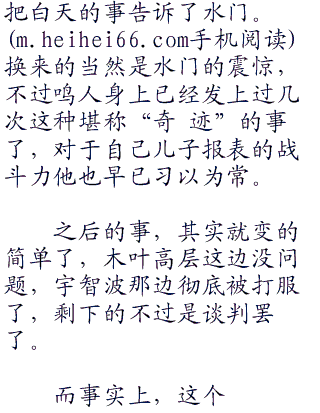 把白天的事告诉了水门。
(m.heihei66.com手机阅读)
换来的当然是水门的震惊，
不过鸣人身上已经发上过几
次这种堪称“奇 迹”的事
了，对于自己儿子报表的战
斗力他也早已习以为常。
之后的事，其实就变的
简单了，木叶高层这边没问
题，宇智波那边彻底被打服
了，剩下的不过是谈判罢
了。
而事实上，这个